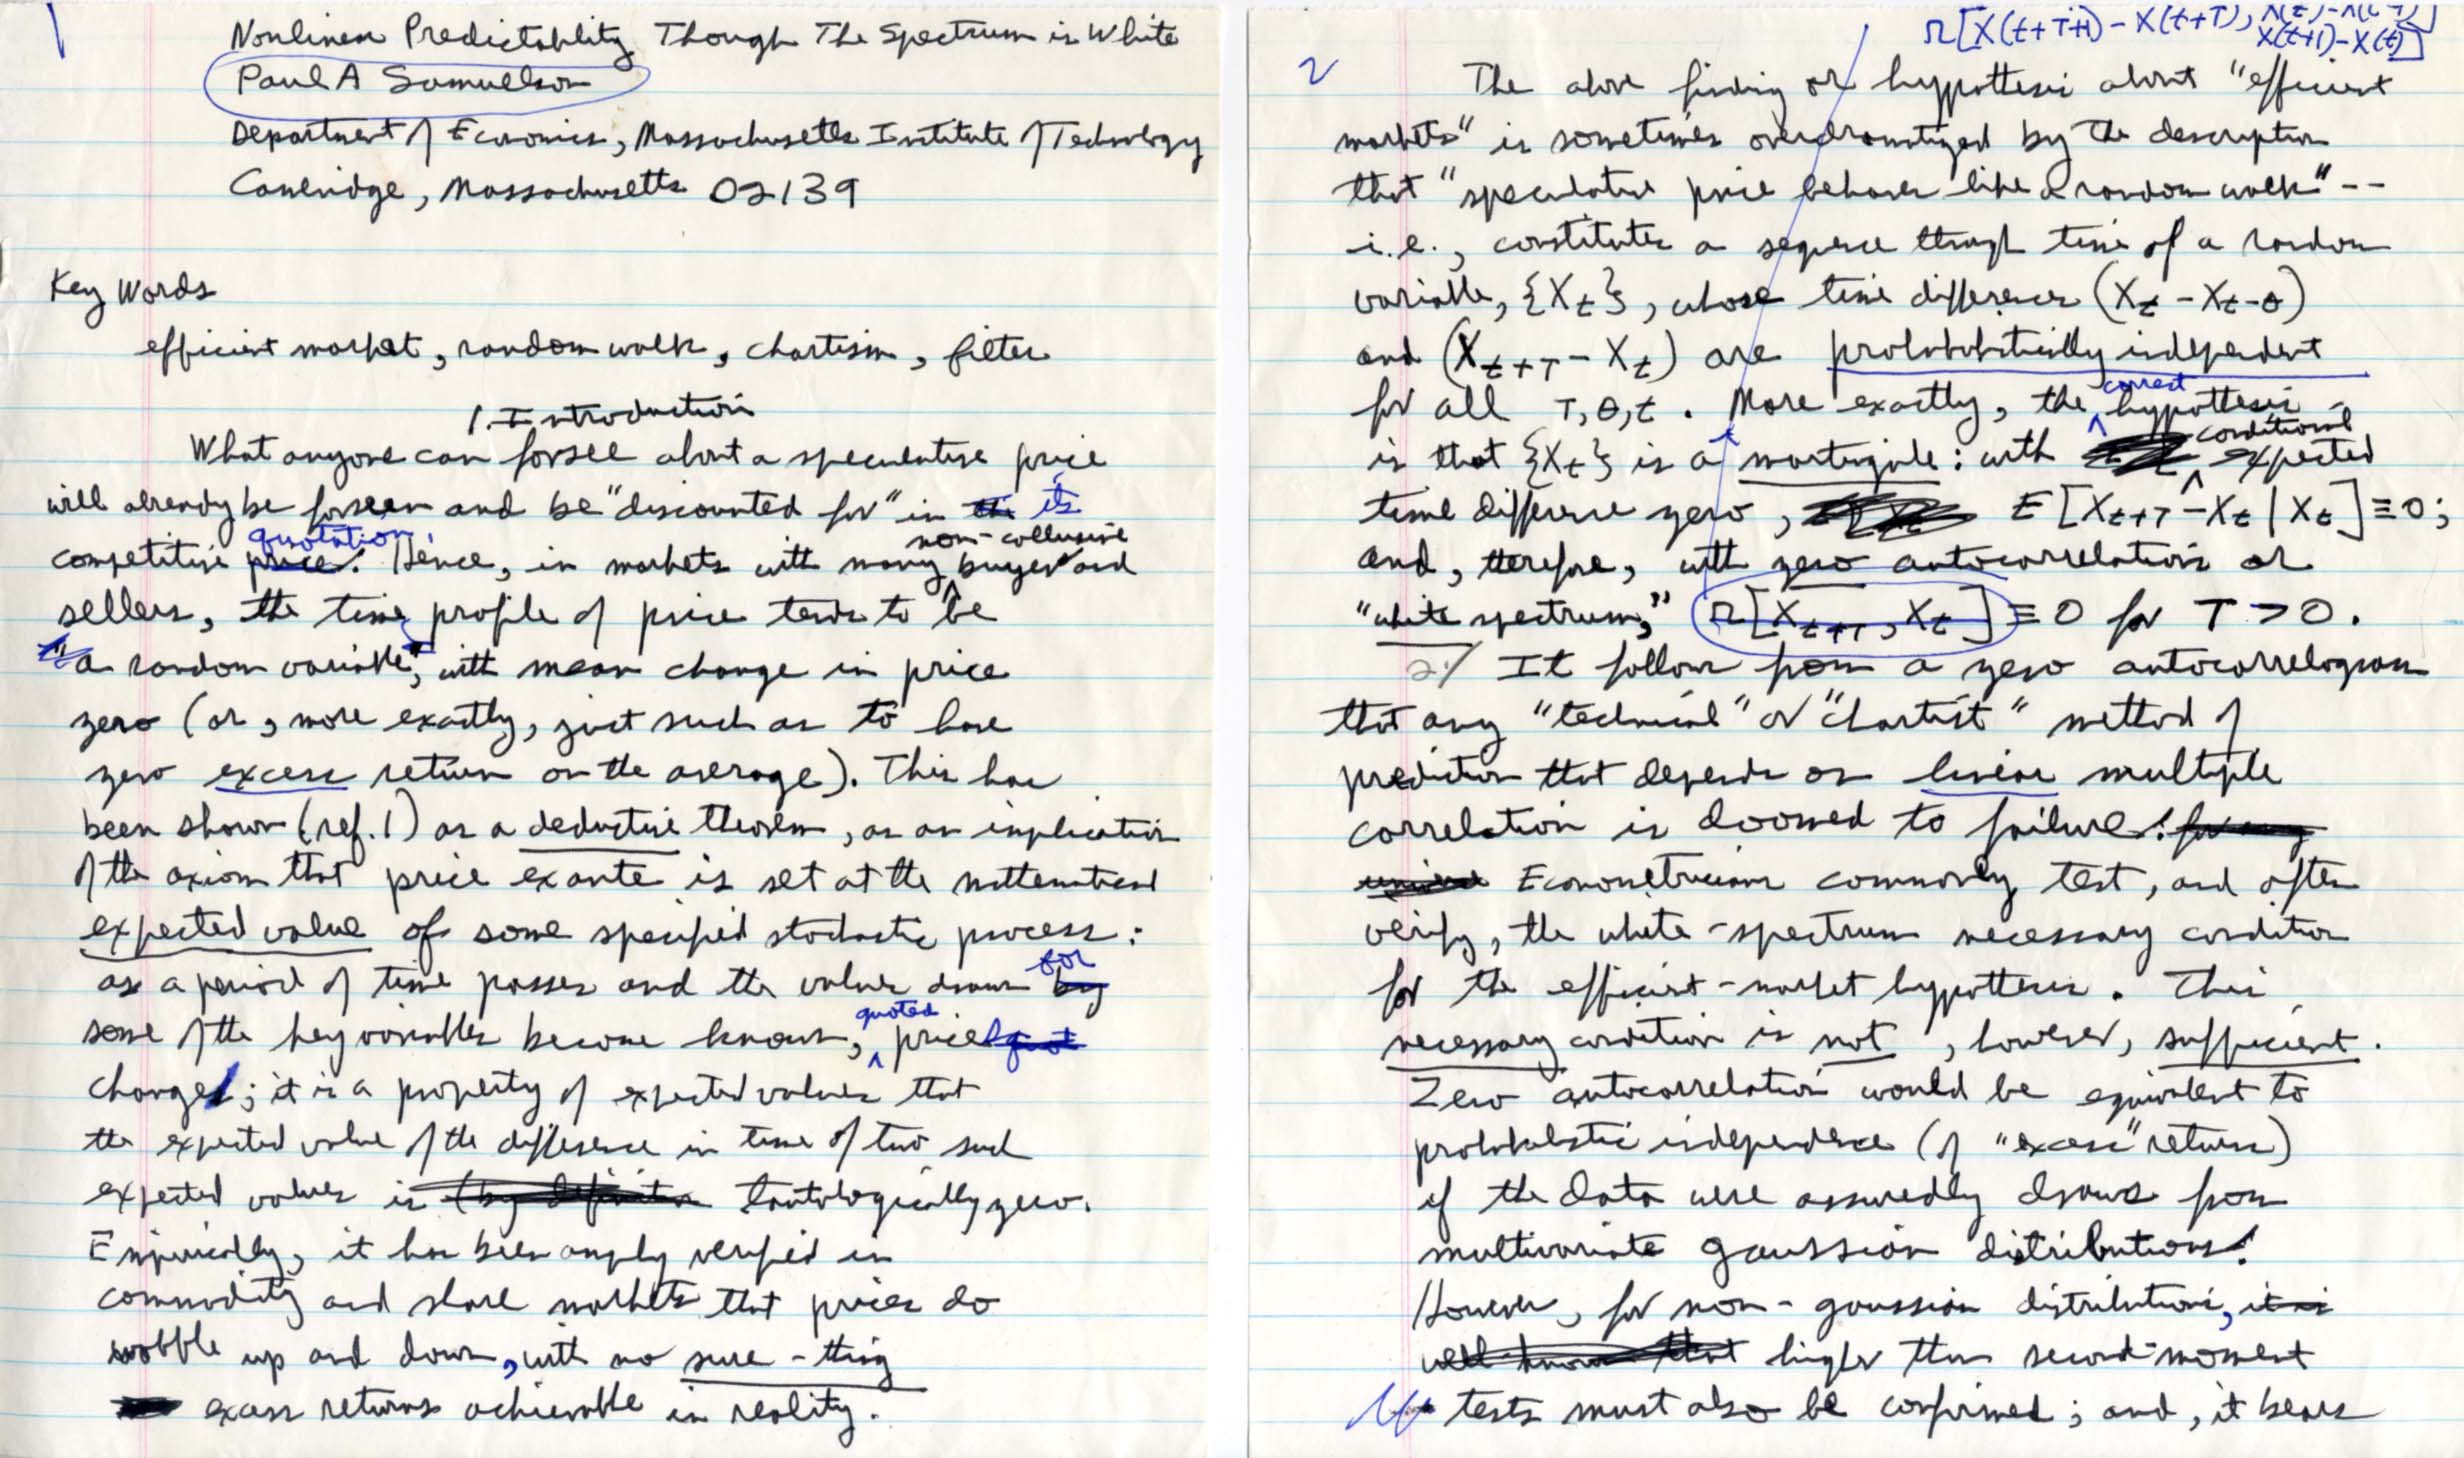 1
Nonlinear Predictability Though The Spectrum is White
Paul A Samuelson
Department of Economics, Massachusetts Institute of Technology
Cambridge, Massachusetts 02139
Key Words
efficient market, random walk, chartism, filter
1. Introduction
What anyone can forsee about a speculative price
will already be forseen and be "discounted for" in the its
quotation.
competitive price. Hence, in markets with many non-collusive buyers and
sellers, the time profile of price tends to be
"a random variable", with mean change in price
zero (or, more exactly, just such as to have
zero excess return on the average). This has
been shown (ref. 1) as a deductive theorem, as an implication
of the axiom that price ex ante is set at the mathematical
expected value of some specified stochastic process:
as a period of time passes and the values drawn by for
some of the key variables become known, quoted price
changes; it is a property of expected values that
the expected value of the difference in time of two such
expected values is (by definition tautologically zero.
Empirically, it has been amply verified in
commodity and share markets that prices do
wobble up and down, with no sure-thing
excess returns achievable in reality.
2
Ω[X(t+T+1)-X(t+T),
X(t+1)-X(t)]
The above finding or hypothesis about "efficient
markets" is sometimes overdramatized by the description
that "speculative price behaves like a random walk"--
i.e., constitutes a sequence through time of a random
variable, {Xt}, whose time differences (Xt - Xt-θ)
and (Xt+T - Xt) are probabilistically independent
for all T, θ, t. More exactly, the correct hypothesis
is that {Xt} is a martingale: with conditional expected
time difference zero, E[Xt+T - Xt | Xt] ≡ 0;
and, therefore, with zero autocorrelation or
"white spectrum," Ω[Xt+T, Xt] ≡ 0 for T > 0.
It follows from a zero autocorrelogram
that any "technical" or "chartist" method of
prediction that depends on linear multiple
correlation is doomed to failure. for any
Econometricians commonly test, and often
verify, the white-spectrum necessary condition
for the efficient-market hypothesis. This
necessary condition is not, however, sufficient.
Zero autocorrelation would be equivalent to
probabilistic independence (of "excess" return)
if the data were assuredly drawn from
multivariate gaussian distributions.
However, for non-gaussian distributions, it is
well known that higher than second-moment
tests must also be confirmed; and, it bears